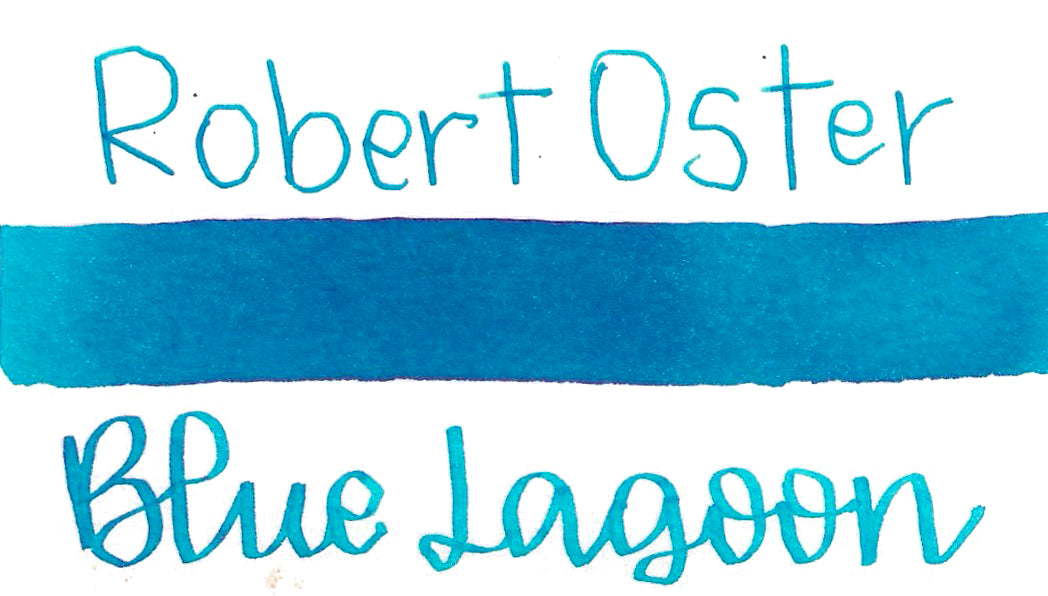 Robert Oster
Blue Lagoon